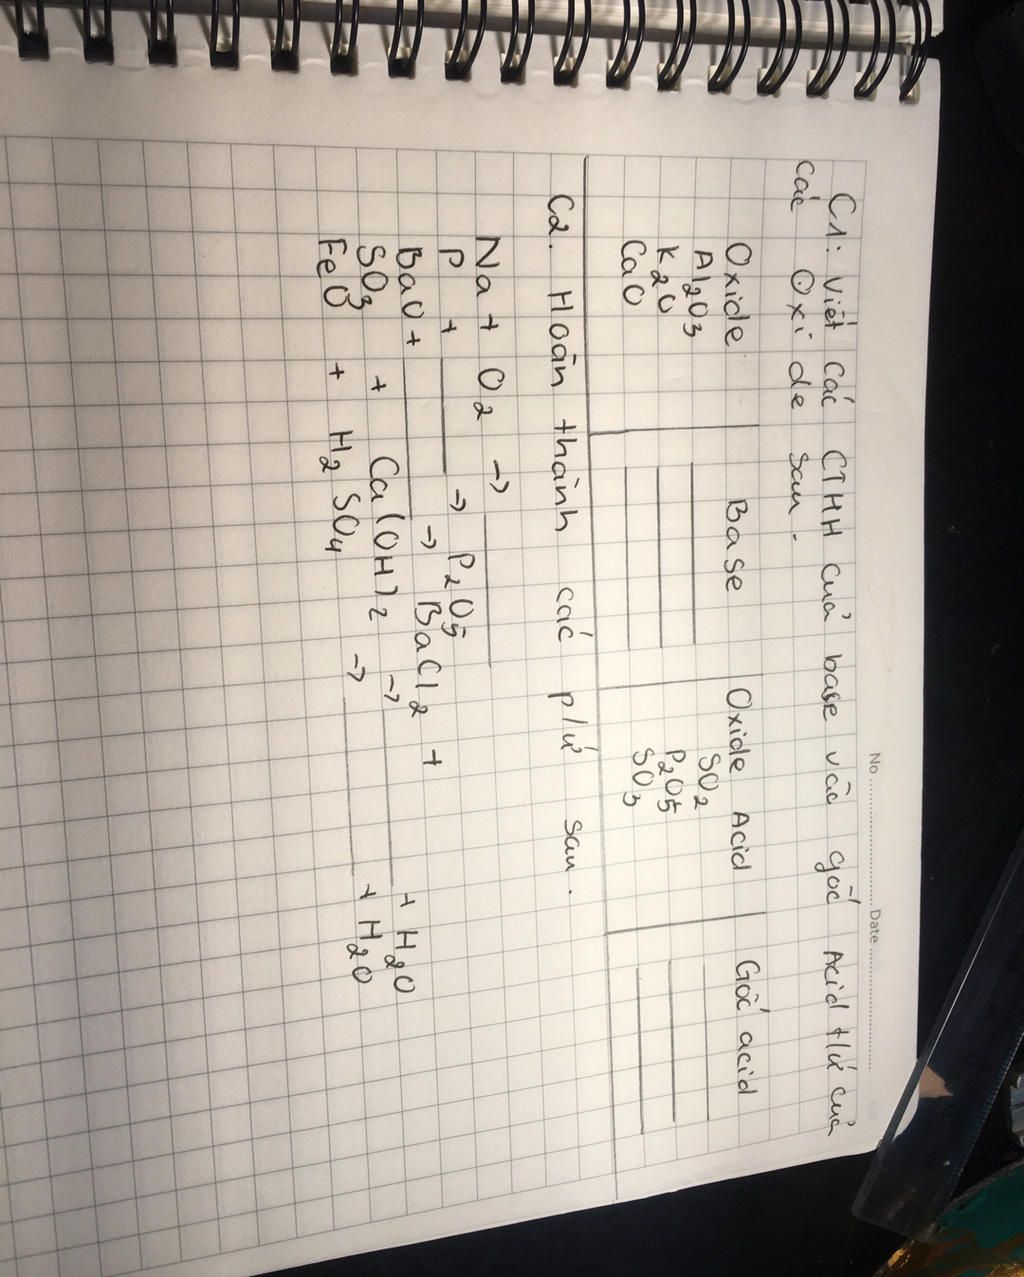 No ........................ Date ........................
C1: Viết các CTHH của base và gốc Acid t/ứ của
các Oxi de sau.
Oxide Base Oxide Acid Gốc acid
Al2O3 ________ SO2 ________
K2O ________ P2O5 ________
CaO ________ SO3 ________
C2. Hoàn thành các p/ứ sau.
Na + O2 → ________
P + ________ → P2O5
BaO + ________ → BaCl2 +
SO3 + Ca(OH)2 → ________ + H2O
FeO + H2SO4 → ________ + H2O